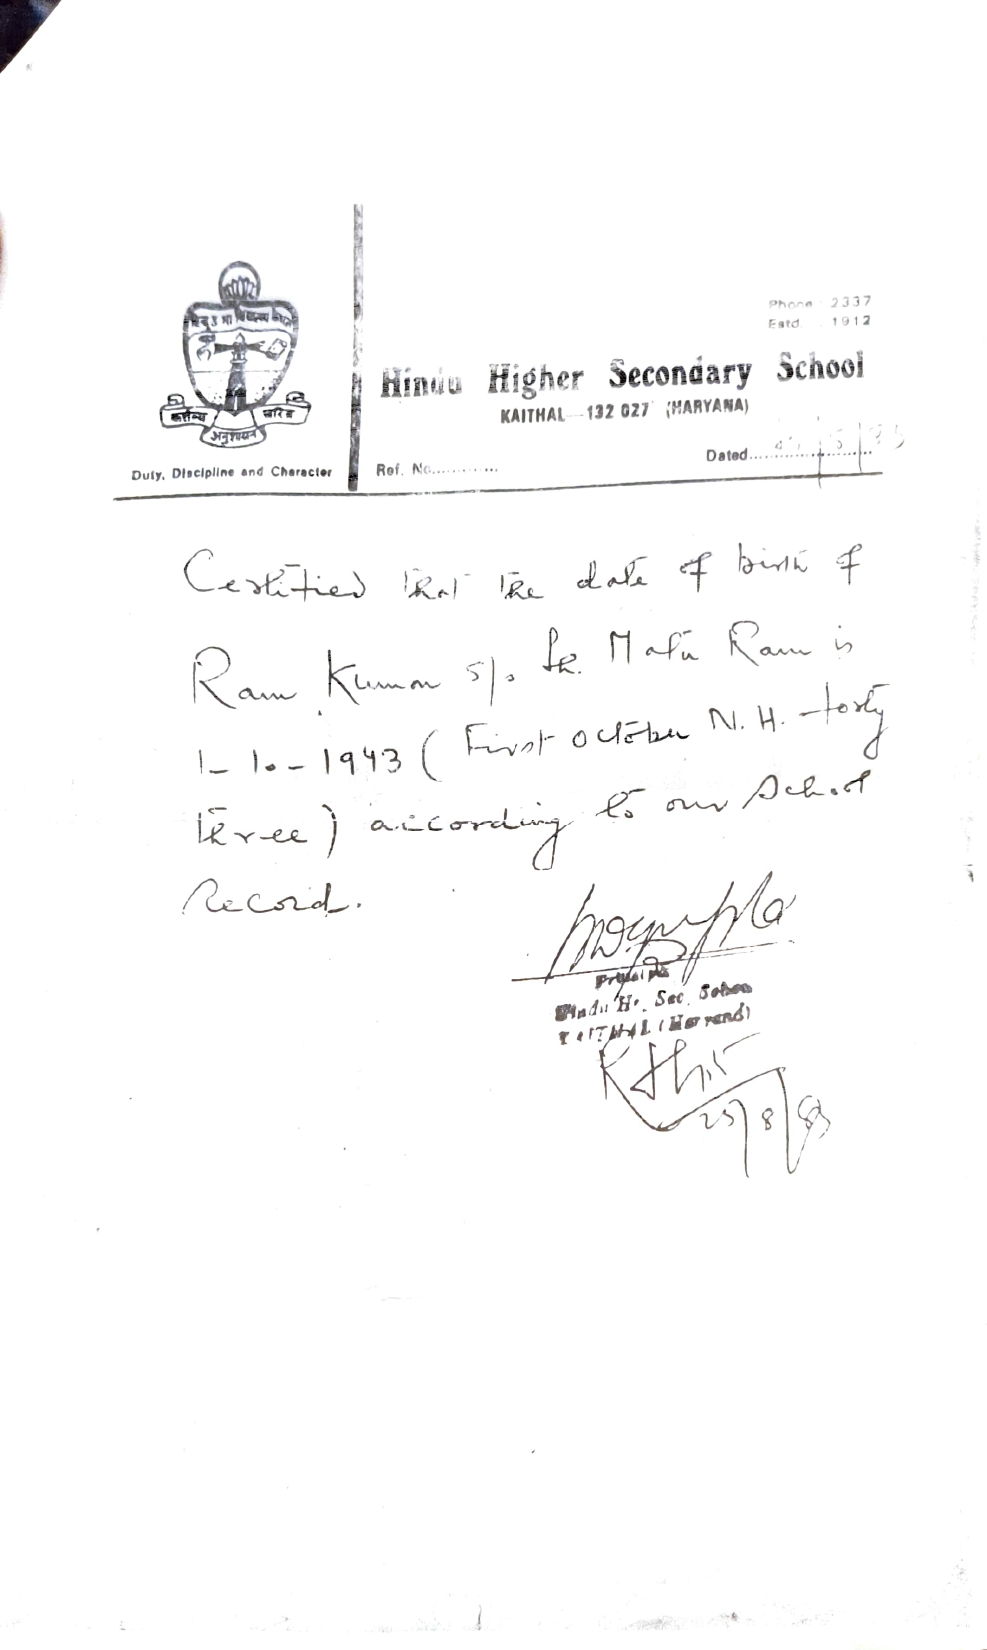 Phone : 2337
Estd. : 1912
Hindu Higher Secondary School
KAITHAL—132 027 (HARYANA)
कर्त्तव्य
चरित्र
अनुशासन
Duty, Discipline and Character
Ref. No............
Dated
Certified that the date of birth of
Ram Kumar s/o Sh. Matu Ram is
1-10-1943 (First October N.H. forty
three) according to our School
Record.
Principal
Hindu Hr. Sec. School
KAITHAL
25/8/83